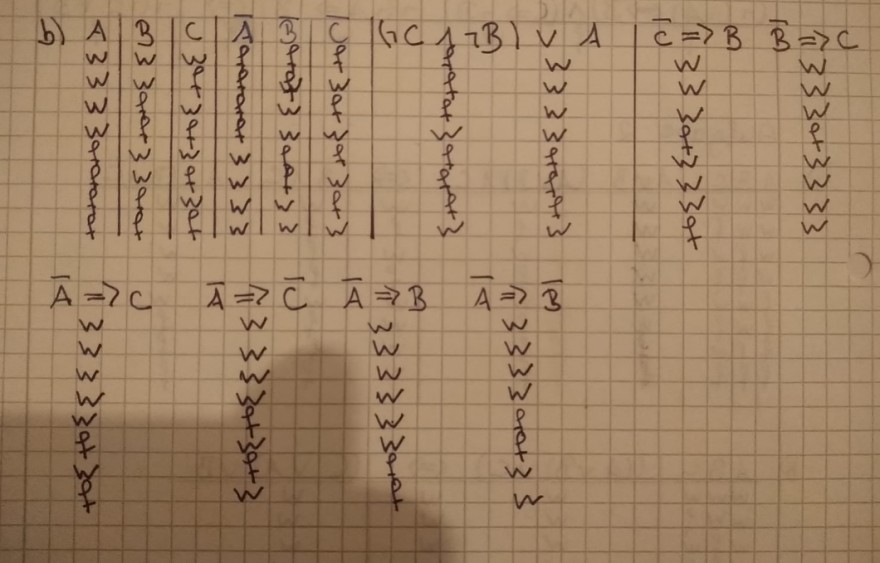 b) A | B | C | A̅ | B̅ | C̅ | (¬C ∧ ¬B) ∨ A | C̅ => B B̅ => C
w w w f f f f w w w
w w f f f w f w w w
w f w f w f f w w w
w f f f w w w w f f
f w w w f f f f w w
f w f w f w f f w w
f f w w w f f f w w
f f f w w w w w f w
A̅ => C A̅ => C̅ A̅ => B A̅ => B̅
w w w w
w w w w
w w w w
w w w w
w f w f
f w w f
w f f w
f w f w